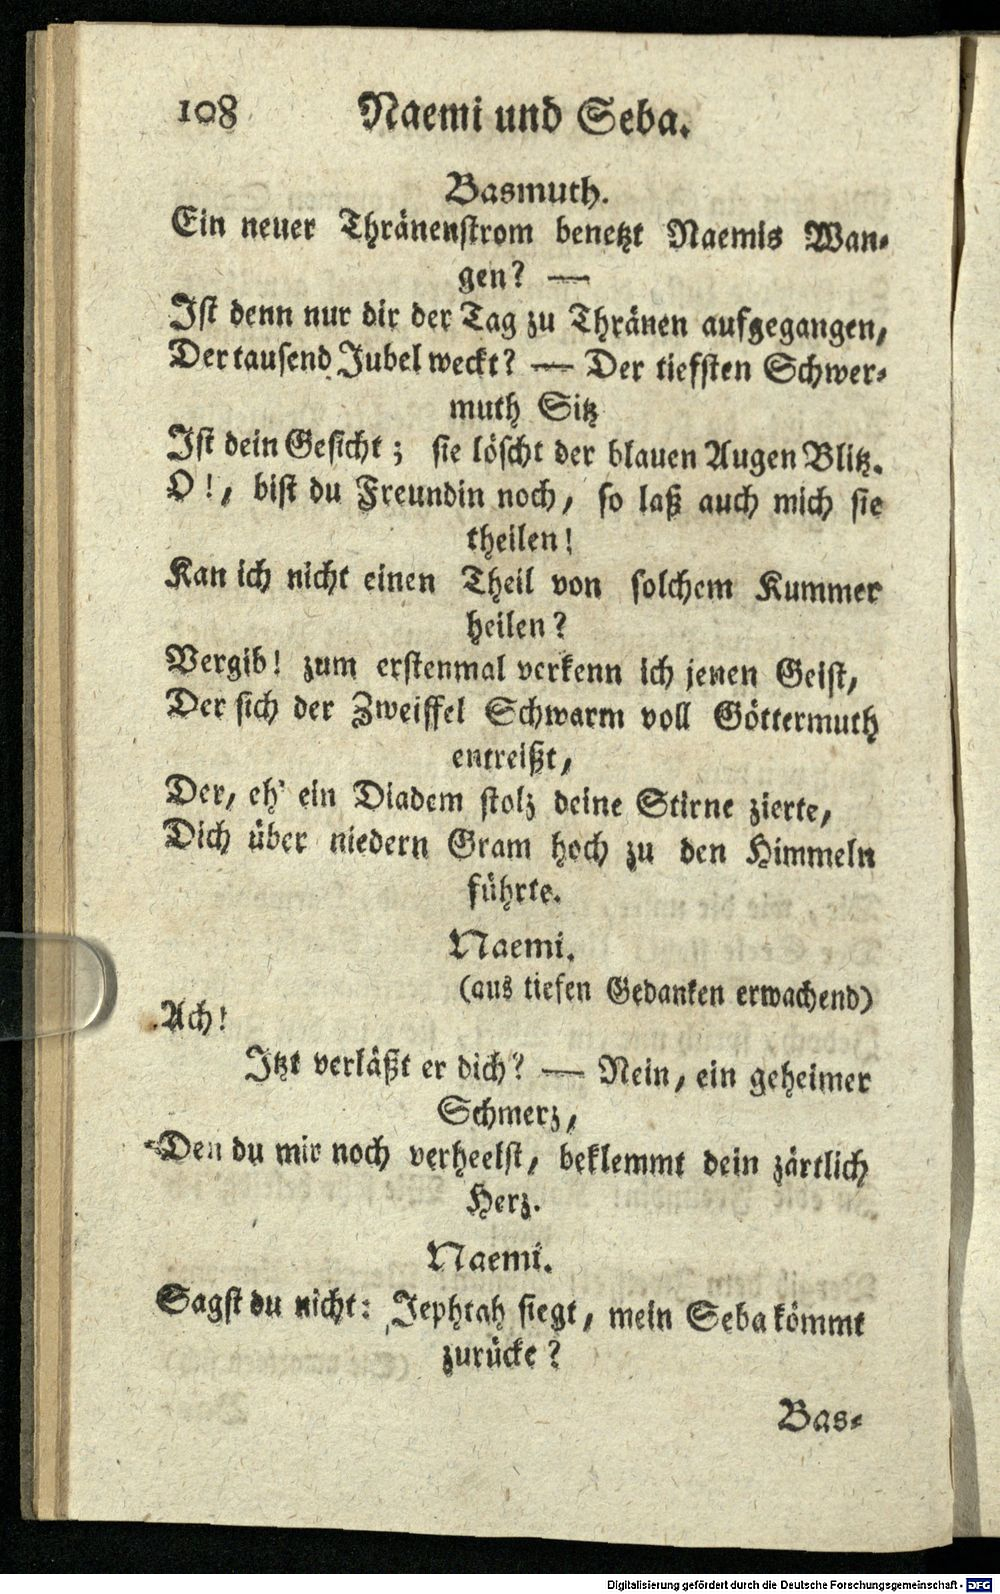 108 Naemi und Seba.
Basmuth.
Ein neuer Thränenstrom benetzt Naemis Wan-
gen? —
Ist denn nur dir der Tag zu Thränen aufgegangen,
Der tausend Jubel weckt? — Der tiefsten Schwer-
muth Sitz
Ist dein Gesicht; sie löscht der blauen Augen Blitz.
O!, bist du Freundin noch, so laß auch mich sie
theilen!
Kan ich nicht einen Theil von solchem Kummer
heilen?
Vergib! zum erstenmal verkenn ich jenen Geist,
Der sich der Zweiffel Schwarm voll Göttermuth
entreißt,
Der, eh' ein Diadem stolz deine Stirne zierte,
Dich über niedern Gram hoch zu den Himmeln
führte.
Naemi.
(aus tiefen Gedanken erwachend)
Ach!
Itzt verläßt er dich? — Nein, ein geheimer
Schmerz,
Den du mir noch verheelst, beklemmt dein zärtlich
Herz.
Naemi.
Sagst du nicht: Jephtah siegt, mein Seba kömmt
zurücke?
Bas-
Digitalisierung gefördert durch die Deutsche Forschungsgemeinschaft - DFG